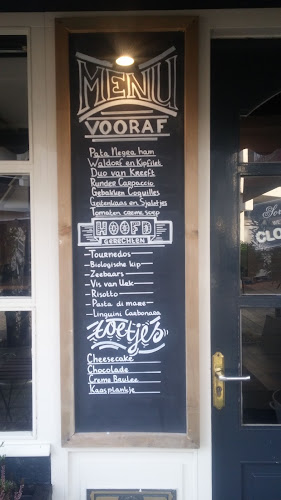 MENU
VOORAF
Pata Negra ham
Waldorf en Kipfilet
Duo van Kreeft
Runder Carpaccio
Gebakken Coquilles
Geitenkaas en Sjalotjes
Tomaten creme soep
HOOFD
GERECHTEN
-Tournedos
-Biologische kip
-Zeebaars
-Vis van Week
-Risotto
-Pasta di mare
-Linguini Carbonara
toetjes
Cheesecake
Chocolade
Creme Brulee
Kaasplantje
CLO